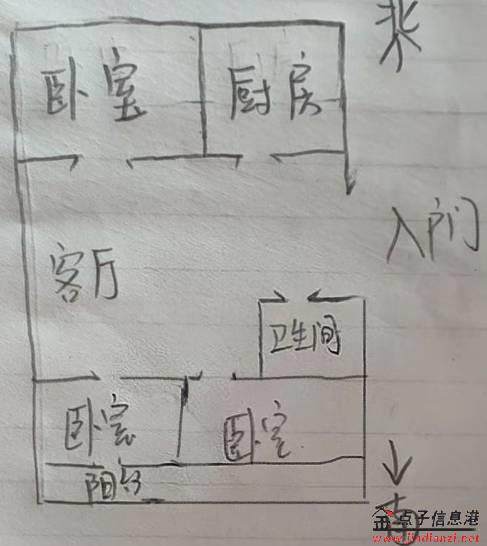 北
卧室
厨房
入户门
客厅
卫生间
卧室
卧室
阳台
南
点子信息港
www.jindianzi.net